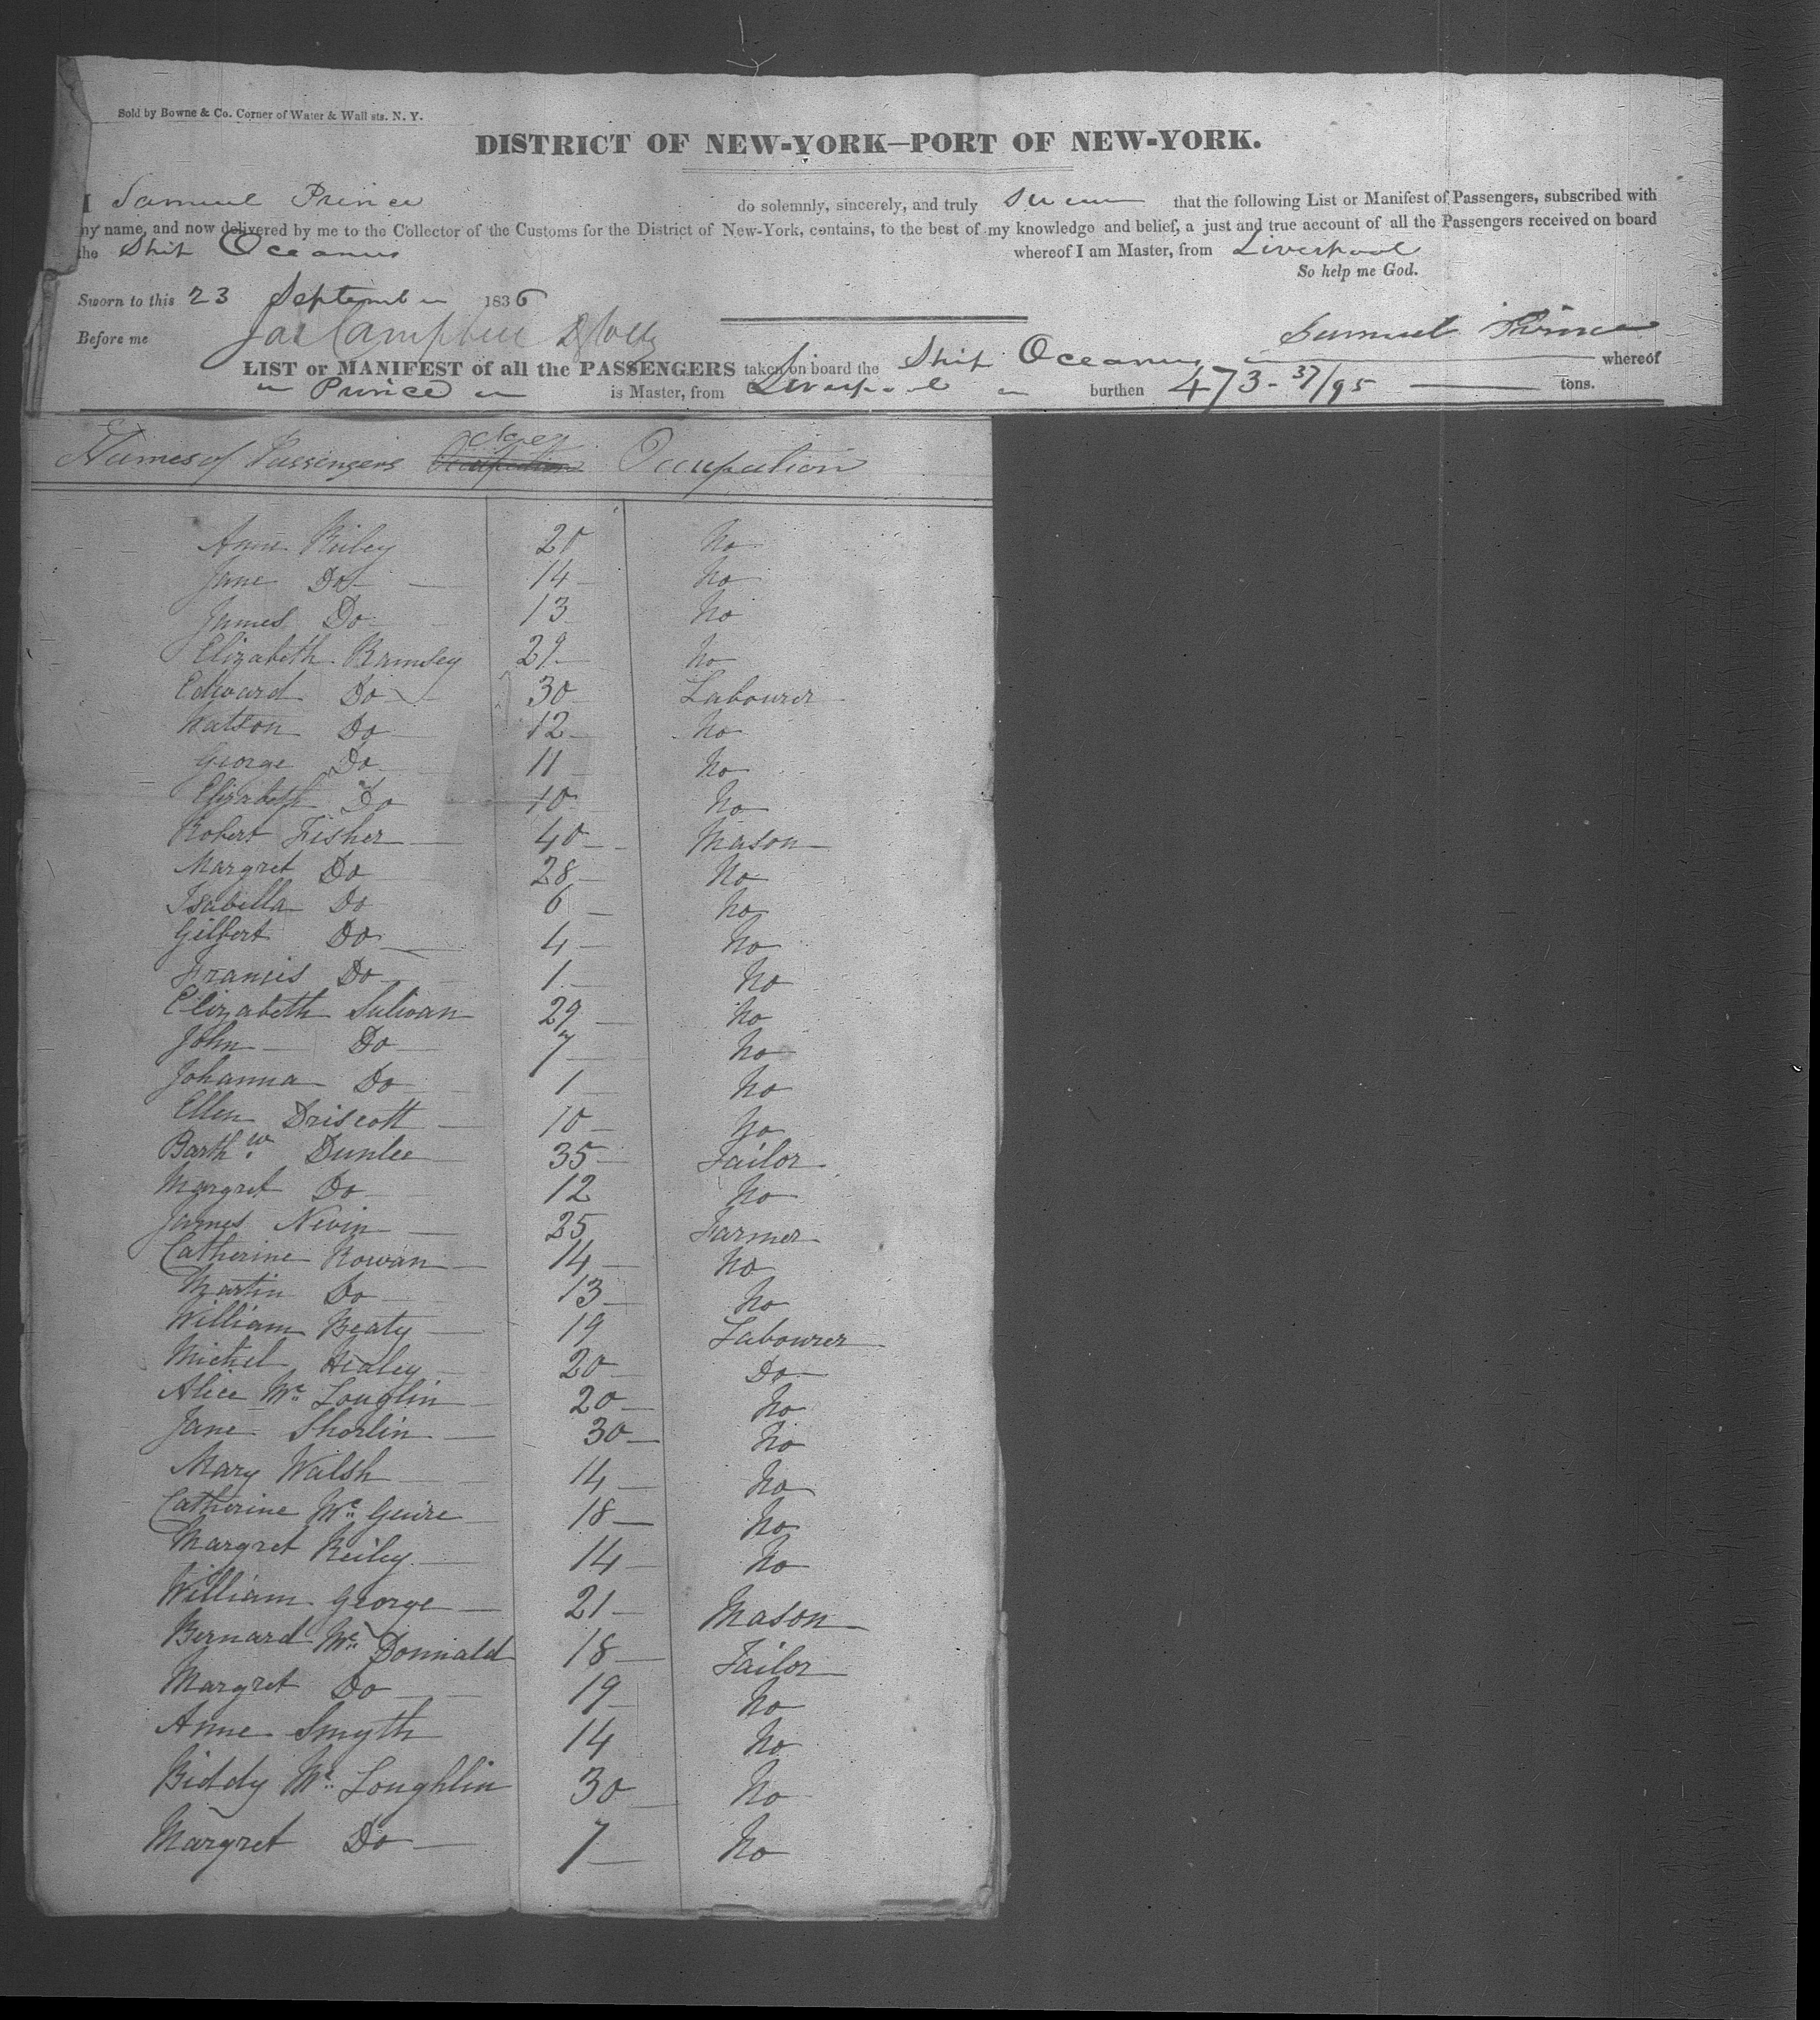 Sold by Bowne & Co. Corner of Water & Wall sts. N. Y.
DISTRICT OF NEW-YORK—PORT OF NEW-YORK.
I Samuel Prince do solemnly, sincerely, and truly swear that the following List or Manifest of Passengers, subscribed with
my name, and now delivered by me to the Collector of the Customs for the District of New-York, contains, to the best of my knowledge and belief, a just and true account of all the Passengers received on board
the Ship Oceanus whereof I am Master, from Liverpool
So help me God.
Sworn to this 23 September 1836
Before me Jas Campbell Samuel Prince
LIST or MANIFEST of all the PASSENGERS taken on board the Ship Oceanus whereof
Prince is Master, from Liverpool burthen 473-37/95 tons.
Names of Passengers Ages Occupation
Anne Reiley 20 No
Jane Do 14 No
James Do 13 No
Elizabeth Ramsley 29 No
Edward Do 30 Labourer
Watson Do 12 No
George Do 11 No
Elizabeth Do 10 No
Robert Fisher 40 Mason
Margret Do 28 No
Isabella Do 6 No
Gilbert Do 4 No
Francis Do 1 No
Elizabeth Sulivan 29 No
John Do 7 No
Johanna Do 1 No
Ellen Driscott 10 No
Barthw Dunlee 35 Tailor
Margret Do 12 No
James Nevin 25 Farmer
Catherine Rowan 14 No
Martin Do 13 No
William Beaty 19 Labourer
Michel Healey 20 Do
Alice Mc Louglin 20 No
Jane Shorlin 30 No
Mary Walsh 14 No
Catherine Mc Guire 18 No
Margret Reiley 14 No
William George 21 Mason
Bernard Mc Donnald 18 Tailor
Margret Do 19 No
Anne Smyth 14 No
Biddy Mc Loughlin 30 No
Margret Do 7 No